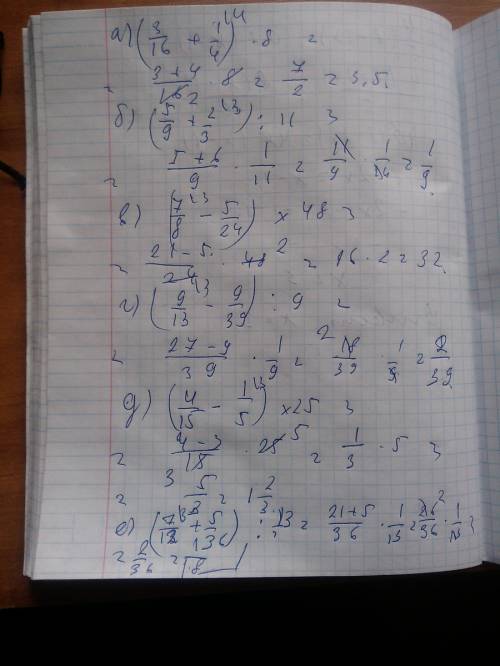 а) (3/16 + 1/4) · 8 =
= 3+4/16 · 8 = 7/2 = 3,5.
б) (5/9 + 2/3) : 11 =
= 5+6/9 · 1/11 = 11/9 · 1/11 = 1/9.
в) (7/8 - 5/24) × 48 =
= 21-5/24 · 48 2 = 16 · 2 = 32.
г) (9/13 - 9/39) : 9 =
= 27-9/39 · 1/9 = 18/39 · 1/9 = 2/39
д) (4/15 - 1/5) × 25 =
= 4-3/15 · 25 5 = 1/3 · 5 =
= 5/3 = 1 2/3.
е) (7/12 + 5/36) : 13 = 21+5/36 · 1/13 = 26/36 · 1/13 =
= 2/36 = 1/18